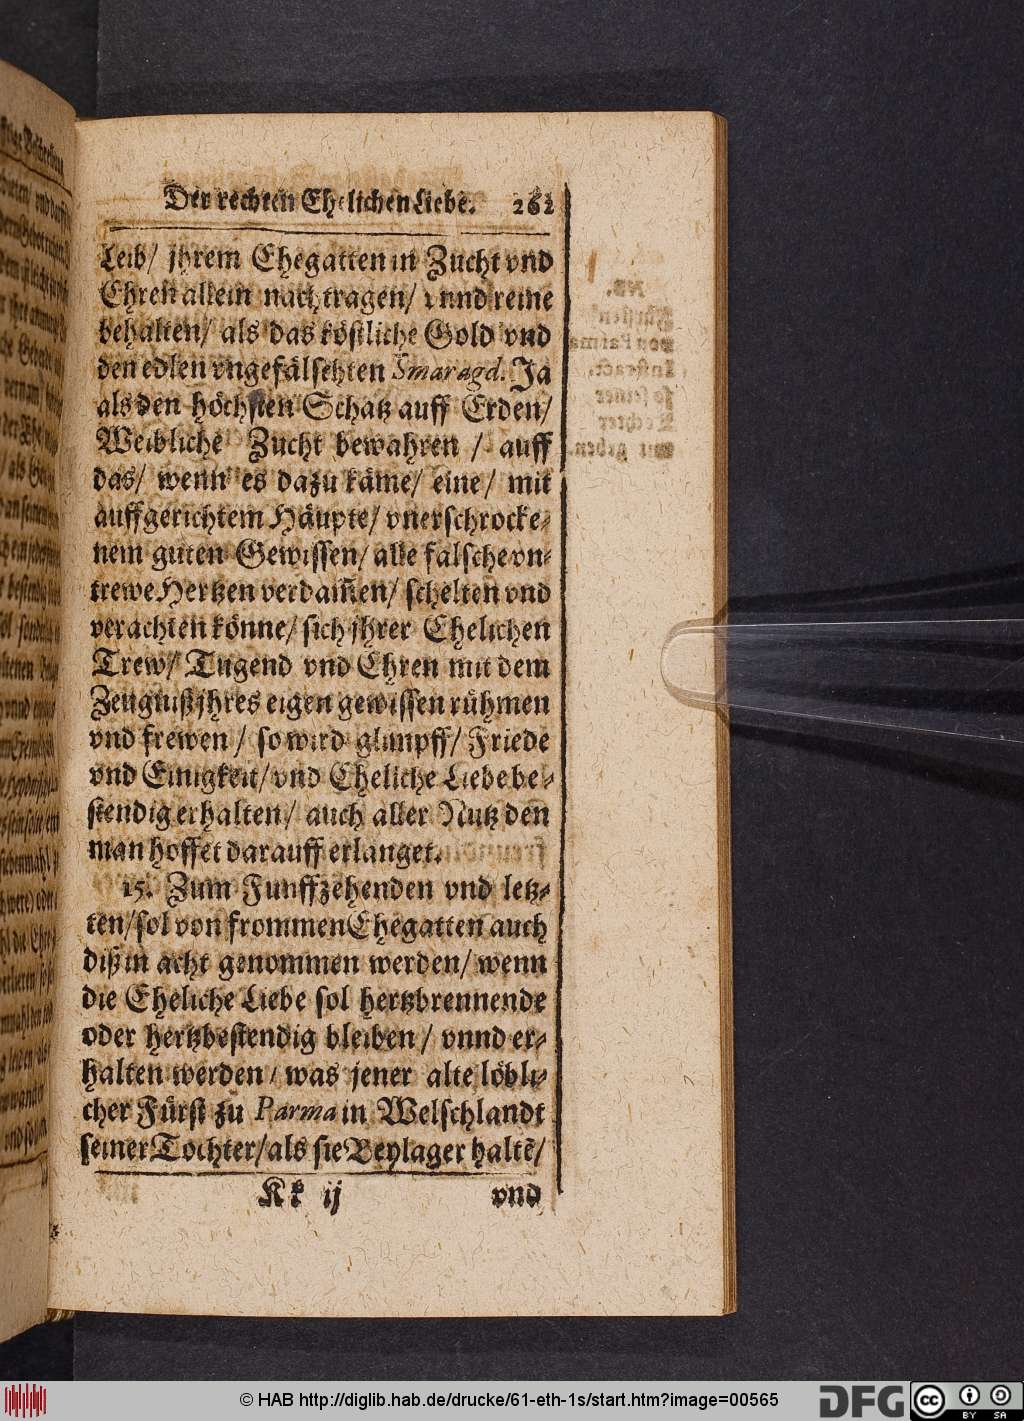 Der rechten Ehelichen Liebe. 262
Leib/ jhrem Ehegatten in Zucht vnd
Ehren allein nachtragen/ vnnd reine
behalten/ als das köstliche Gold vnd
den edlen vngefälschten Smaragd. Ja
als den höchsten Schatz auff Erden/
Weibliche Zucht bewahren / auff
das/ wenn es dazu käme/ eine/ mit
auffgerichtem Häupte/ vnerschrocke-
nem guten Gewissen/ alle falsche vn-
trewe Hertzen verdam̃en/ schelten vnd
verachten könne/ sich jhrer Ehelichen
Trew/ Tugend vnd Ehren mit dem
Zeugniß jhres eigen gewissen rühmen
vnd frewen / so wird glimpff/ Friede
vnd Einigkeit/ vnd Eheliche Liebe be-
stendig erhalten/ auch aller Nutz den
man hoffet darauff erlanget.
15. Zum Funffzehenden vnd letz-
ten/ sol von frommen Ehegatten auch
diß in acht genommen werden/ wenn
die Eheliche Liebe sol hertzbrennende
oder hertzbestendig bleiben / vnnd er-
halten werden / was jener alte löbli-
cher Fürst zu Parma in Welschlandt
seiner Tochter/ als sie Beylager haltẽ/
Kk ij vnd
© HAB http://diglib.hab.de/drucke/61-eth-1s/start.htm?image=00565
DFG
cc BY SA